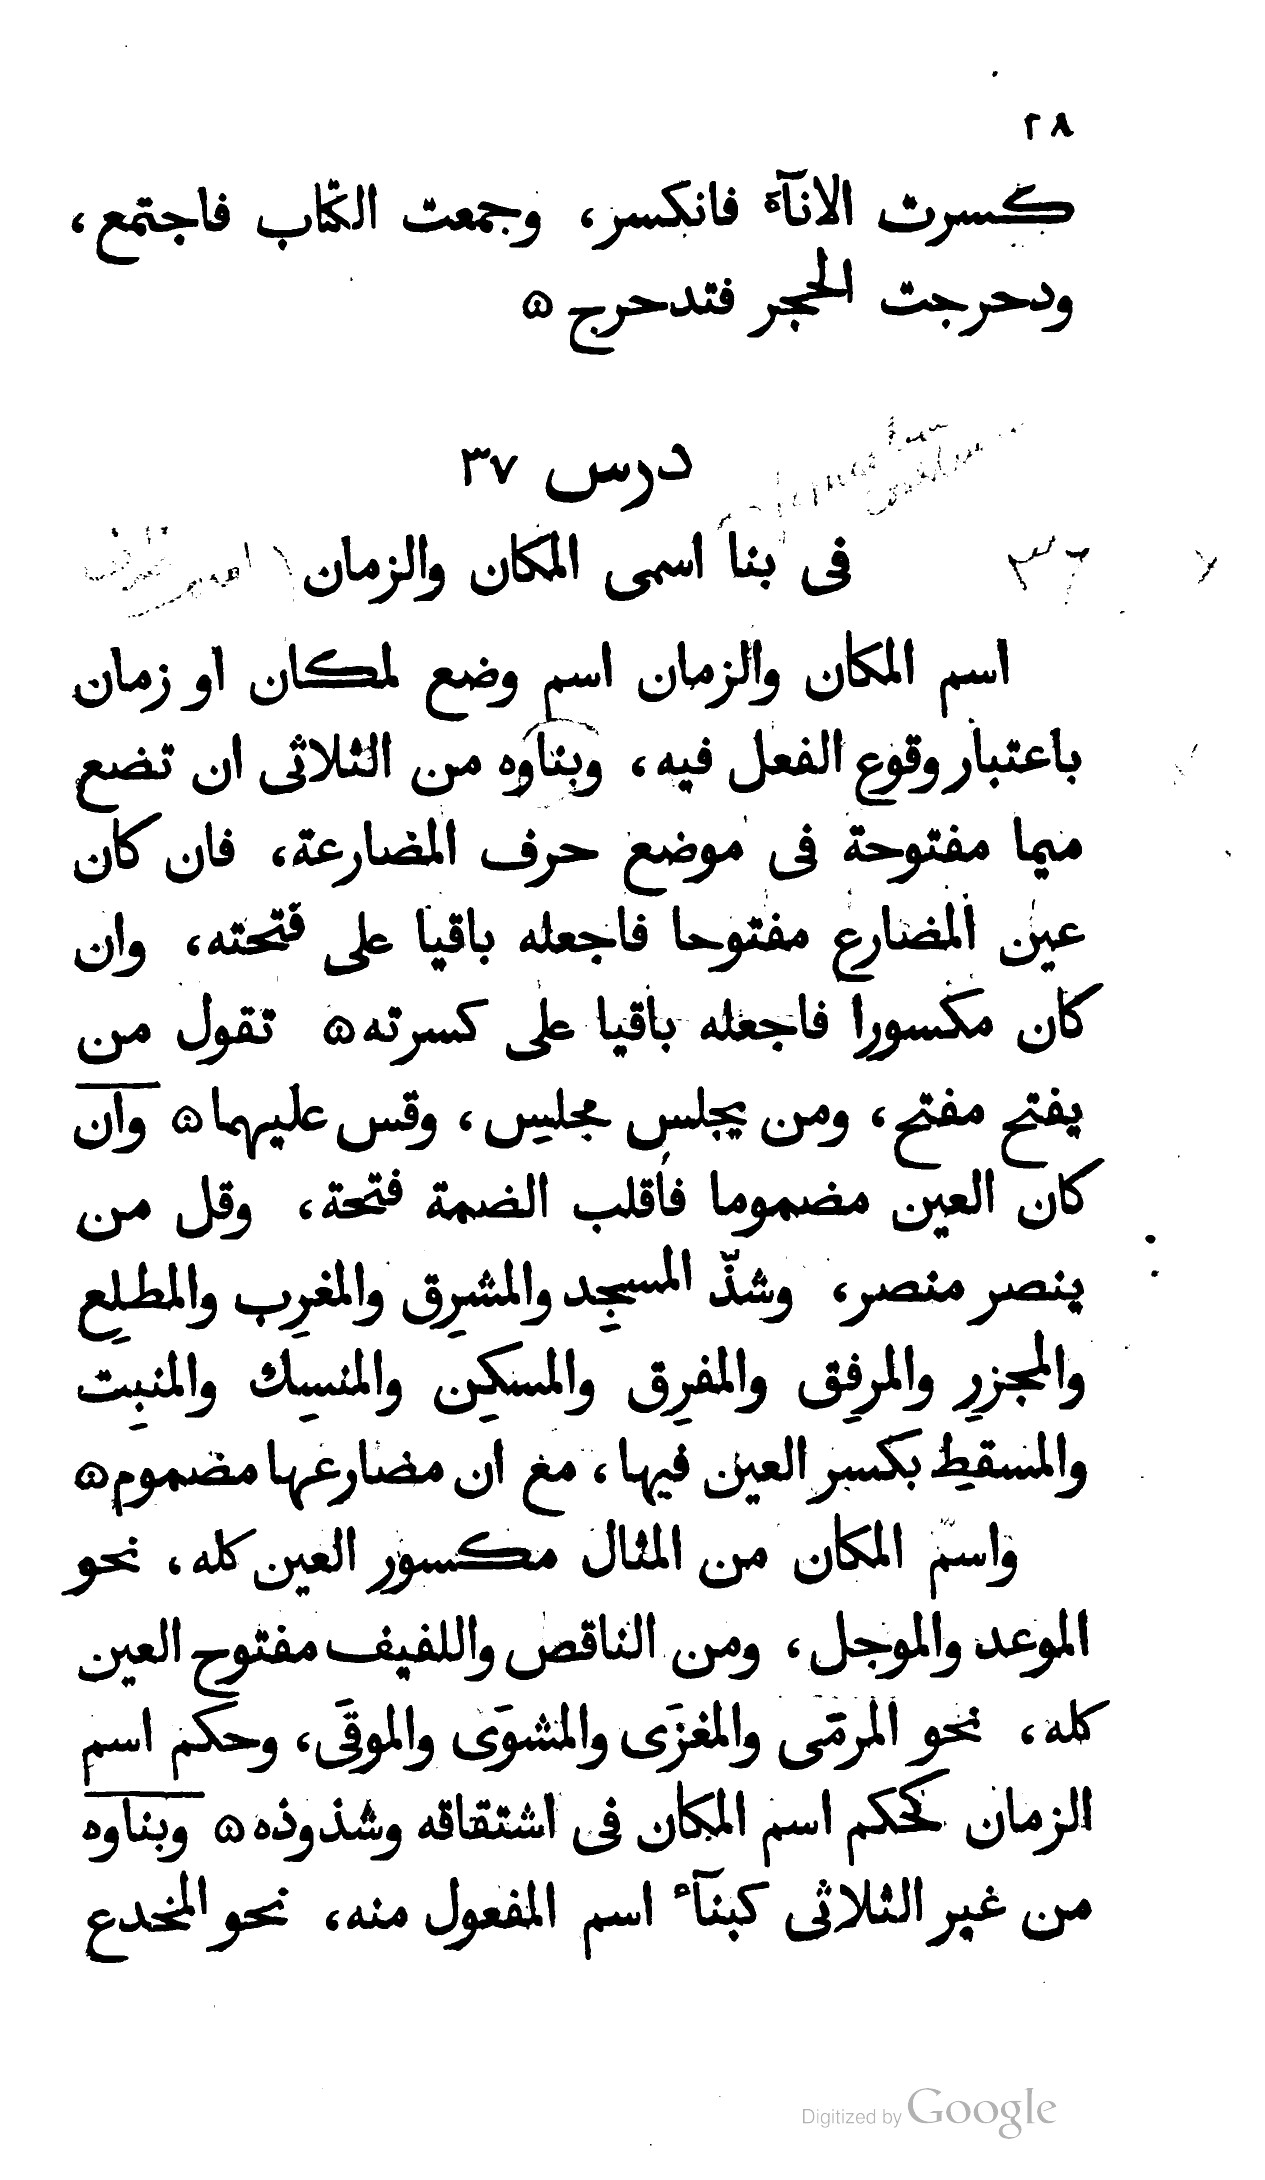 ٢٨
كسرت الانآءَ فانكسر، وجمعت الكتّاب فاجتمع،
ودحرجت الحجر فتدحرج ۞
درس ٣٧
فى بنا اسمى المكان والزمان
اسم المكان والزمان اسم وضع لمكان او زمان
باعتبار وقوع الفعل فيه، وبناوه من الثلاثى ان تضع
ميما مفتوحة فى موضع حرف المضارعة، فان كان
عين المضارع مفتوحا فاجعله باقيا على فتحته، وان
كان مكسورا فاجعله باقيا على كسرته ۞ تقول من
يفتح مفتح، ومن يجلس مجلِس، وقس عليهما ۞ وان
كان العين مضموما فأقلب الضمة فتحة، وقل من
ينصر منصر، وشذّ المسجِد والمشرِق والمغرِب والمطلِع
والمجزرِ والمرفِق والمفرِق والمسكِن والمنسِك والمنبِت
والمسقِط بكسر العين فيها، مع ان مضارعها مضموم ۞
واسم المكان من المثال مكسور العين كله، نحو
الموعد والموجل، ومن الناقص واللفيف مفتوح العين
كله، نحو المرمَى والمغزَى والمشوَى والموقَى، وحكم اسم
الزمان كحكم اسم المكان فى اشتقاقه وشذوذه ۞ وبناوه
من غير الثلاثى كبنآء اسم المفعول منه، نحو المخدع
Digitized by Google